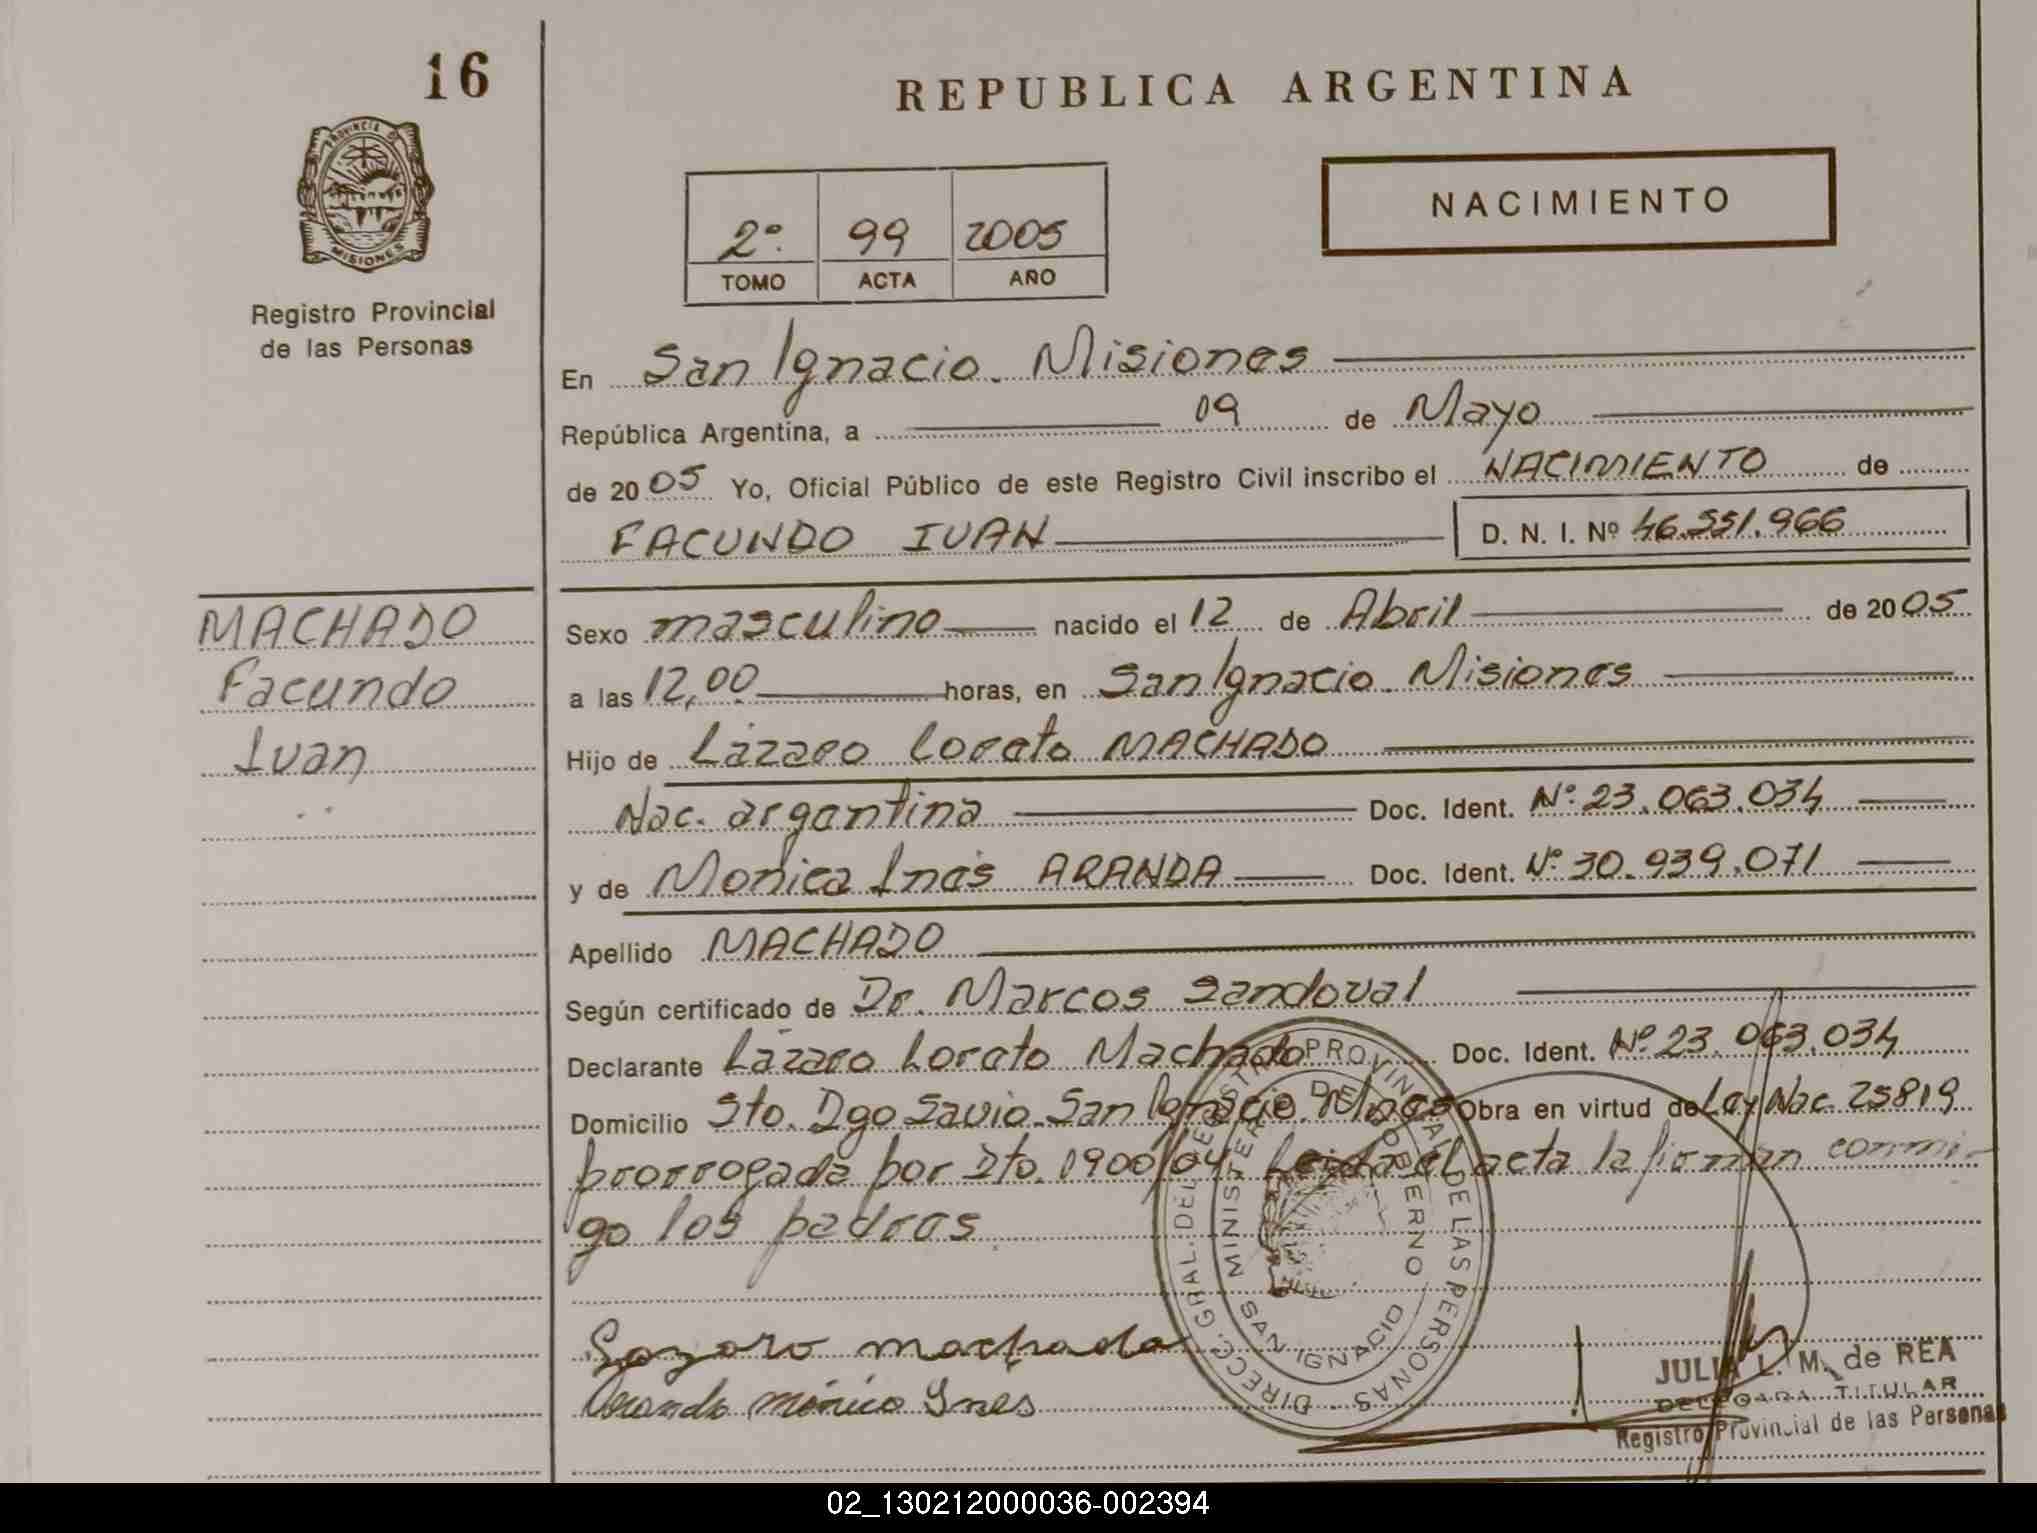 16
REPUBLICA ARGENTINA
PROVINCIA DE
MISIONES
Registro Provincial
de las Personas
NACIMIENTO
2º. 99 2005
TOMO ACTA AÑO
En San Ignacio. Misiones
República Argentina, a 09 de Mayo
de 2005 Yo, Oficial Público de este Registro Civil inscribo el NACIMIENTO de
FACUNDO IVAN D. N. I. Nº 46.551.966
MACHADO
Facundo
Ivan
Sexo masculino nacido el 12 de Abril de 2005
a las 12,00 horas, en San Ignacio. Misiones
Hijo de Lázaro Loreto MACHADO
Nac. argentina Doc. Ident. Nº 23.063.034
y de Monica Inés ARANDA Doc. Ident. Nº 30.939.071
Apellido MACHADO
Según certificado de Dr. Marcos Sandoval
Declarante Lázaro Loreto Machado Doc. Ident. Nº 23.063.034
Domicilio Sto. Dgo Savio. San Ignacio. Mnes Obra en virtud de Ley Nac. 25819
prorrogada por Dto. 1900/04. Leida el acta la firman conmi-
go los padres
DIRECC. GRAL. DEL REGISTRO PROVINCIAL DE LAS PERSONAS
MINISTERIO DE GOBIERNO
SAN IGNACIO
Lazaro machado
Aranda mónica Ines
JULIA L. M. de REA
DELEGADA TITULAR
Registro Provincial de las Personas
02_130212000036-002394